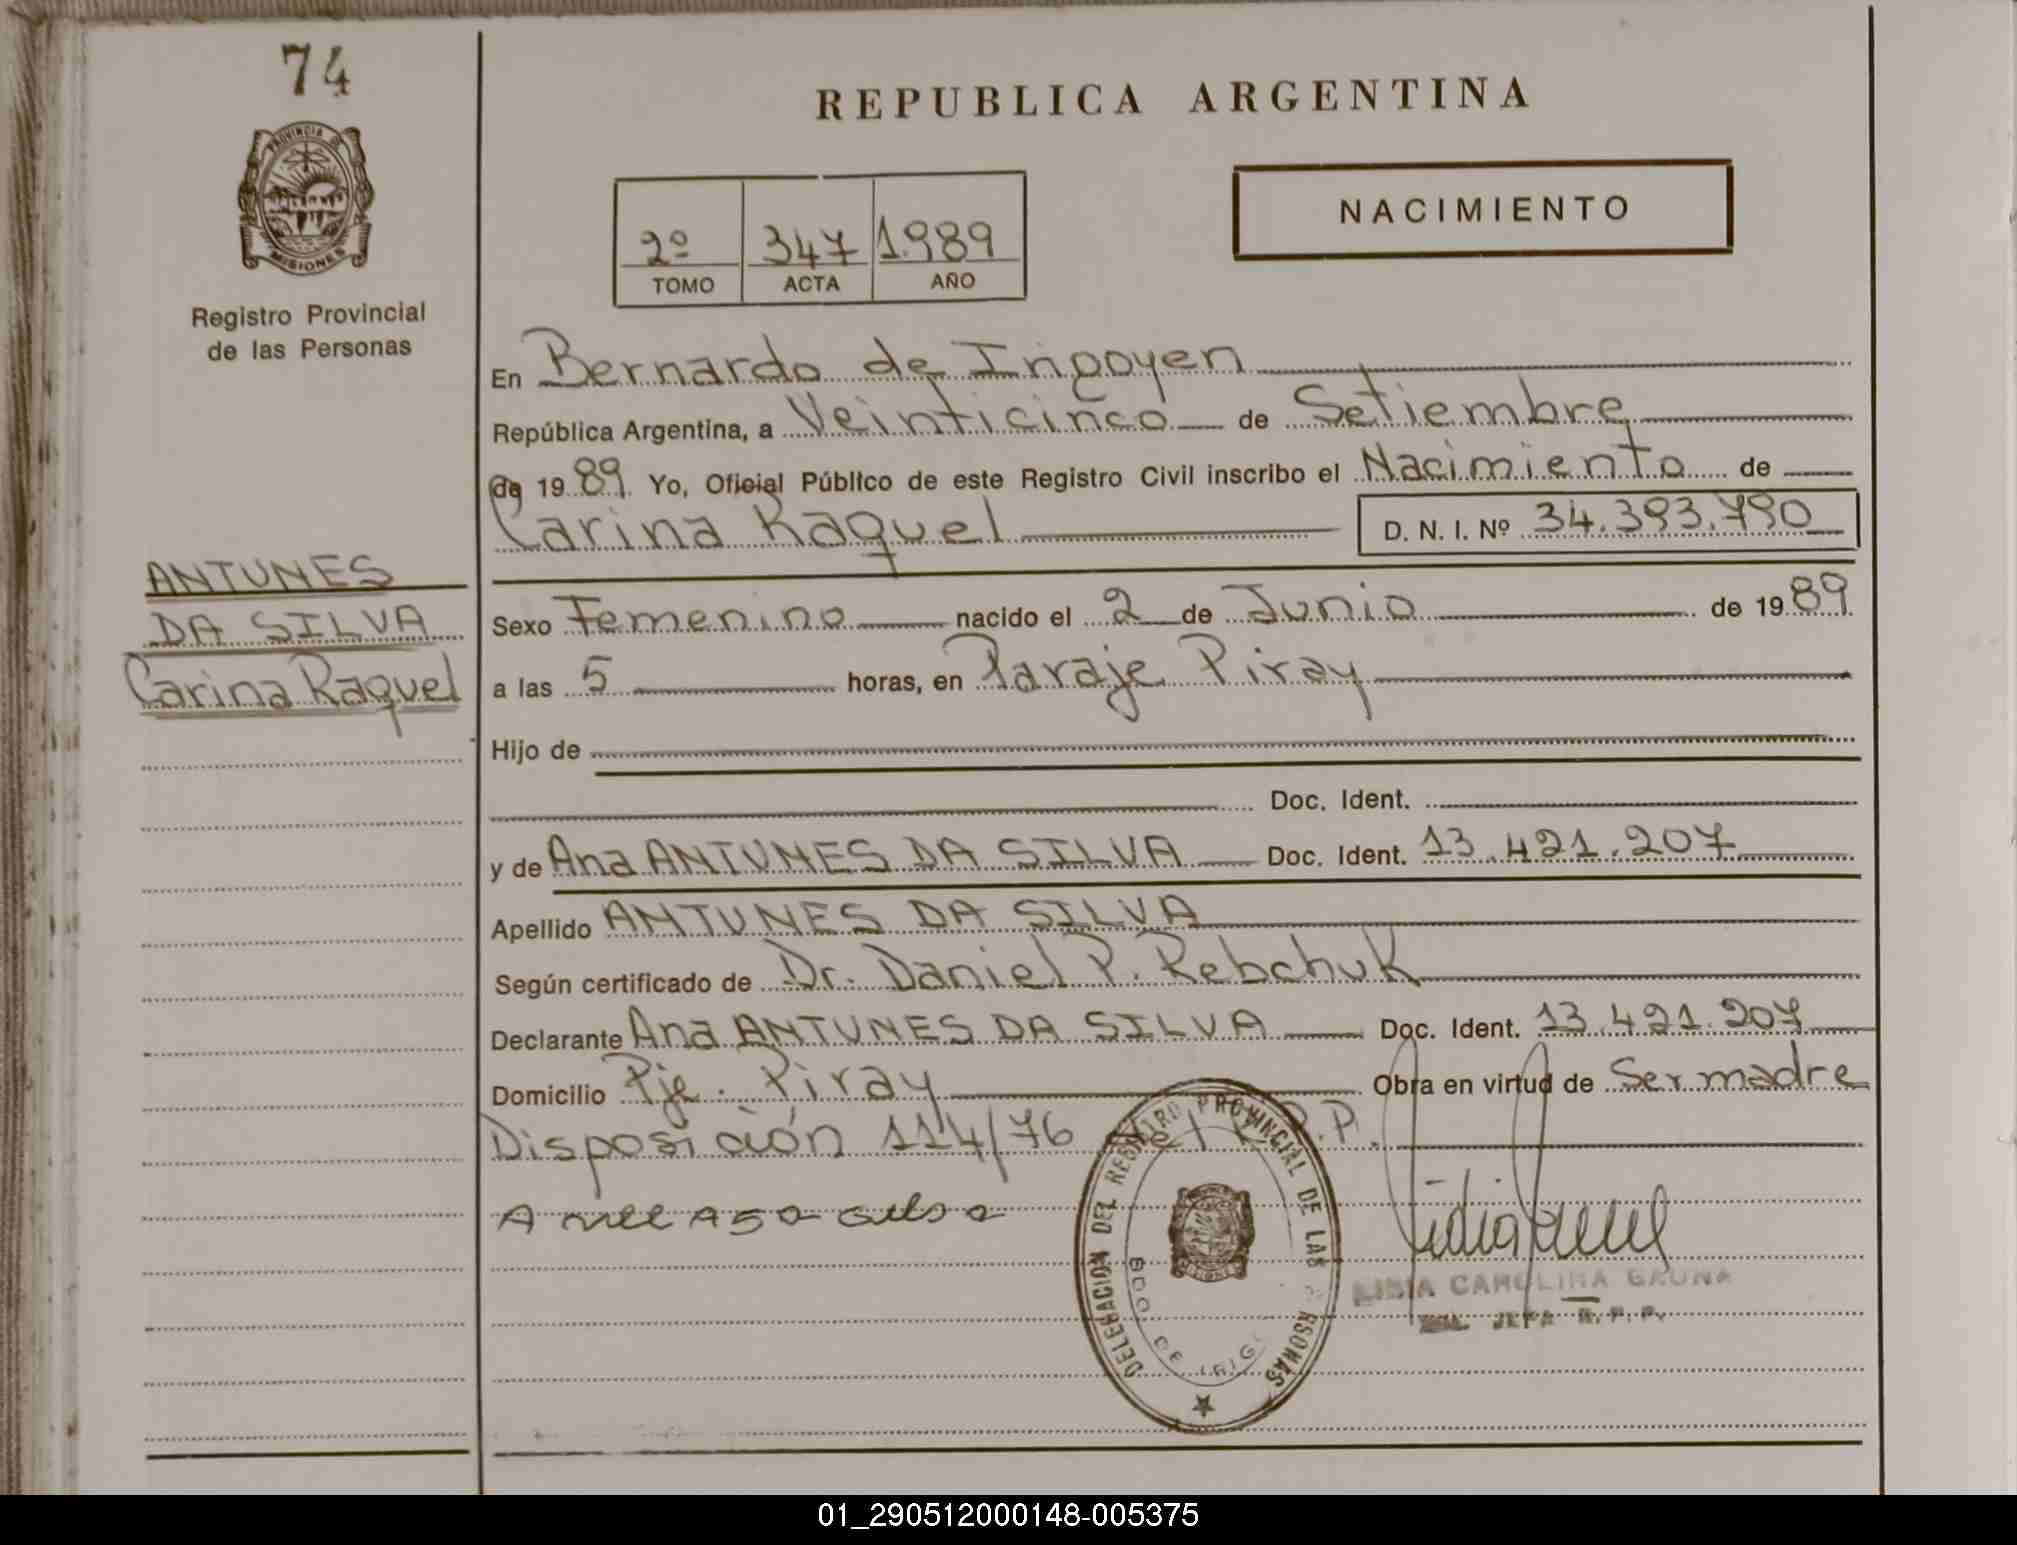 74
PROVINCIA DE
MISIONES
Registro Provincial
de las Personas
ANTUNES
DA SILVA
Carina Raquel
REPUBLICA ARGENTINA
2º 347 1.989
TOMO ACTA AÑO
NACIMIENTO
En Bernardo de Irigoyen
República Argentina, a Veinticinco de Setiembre
de 1989 Yo, Oficial Público de este Registro Civil inscribo el Nacimiento de
Carina Raquel D. N. I. Nº 34.393.790
Sexo Femenino nacido el 2 de Junio de 1989
a las 5 horas, en Paraje Piray
Hijo de
Doc. Ident.
y de Ana ANTUNES DA SILVA Doc. Ident. 13.421.207
Apellido ANTUNES DA SILVA
Según certificado de Dr. Daniel P. Rebchuk
Declarante Ana ANTUNES DA SILVA Doc. Ident. 13.421.207
Domicilio Pje. Piray Obra en virtud de Ser madre
Disposición 114/76 R.P.P.
DELEGACION DEL REGISTRO PROVINCIAL DE LAS PERSONAS
BDO. DE IRIG
LIDIA CAROLINA GAUNA
JEFA R.P.P.
01_290512000148-005375